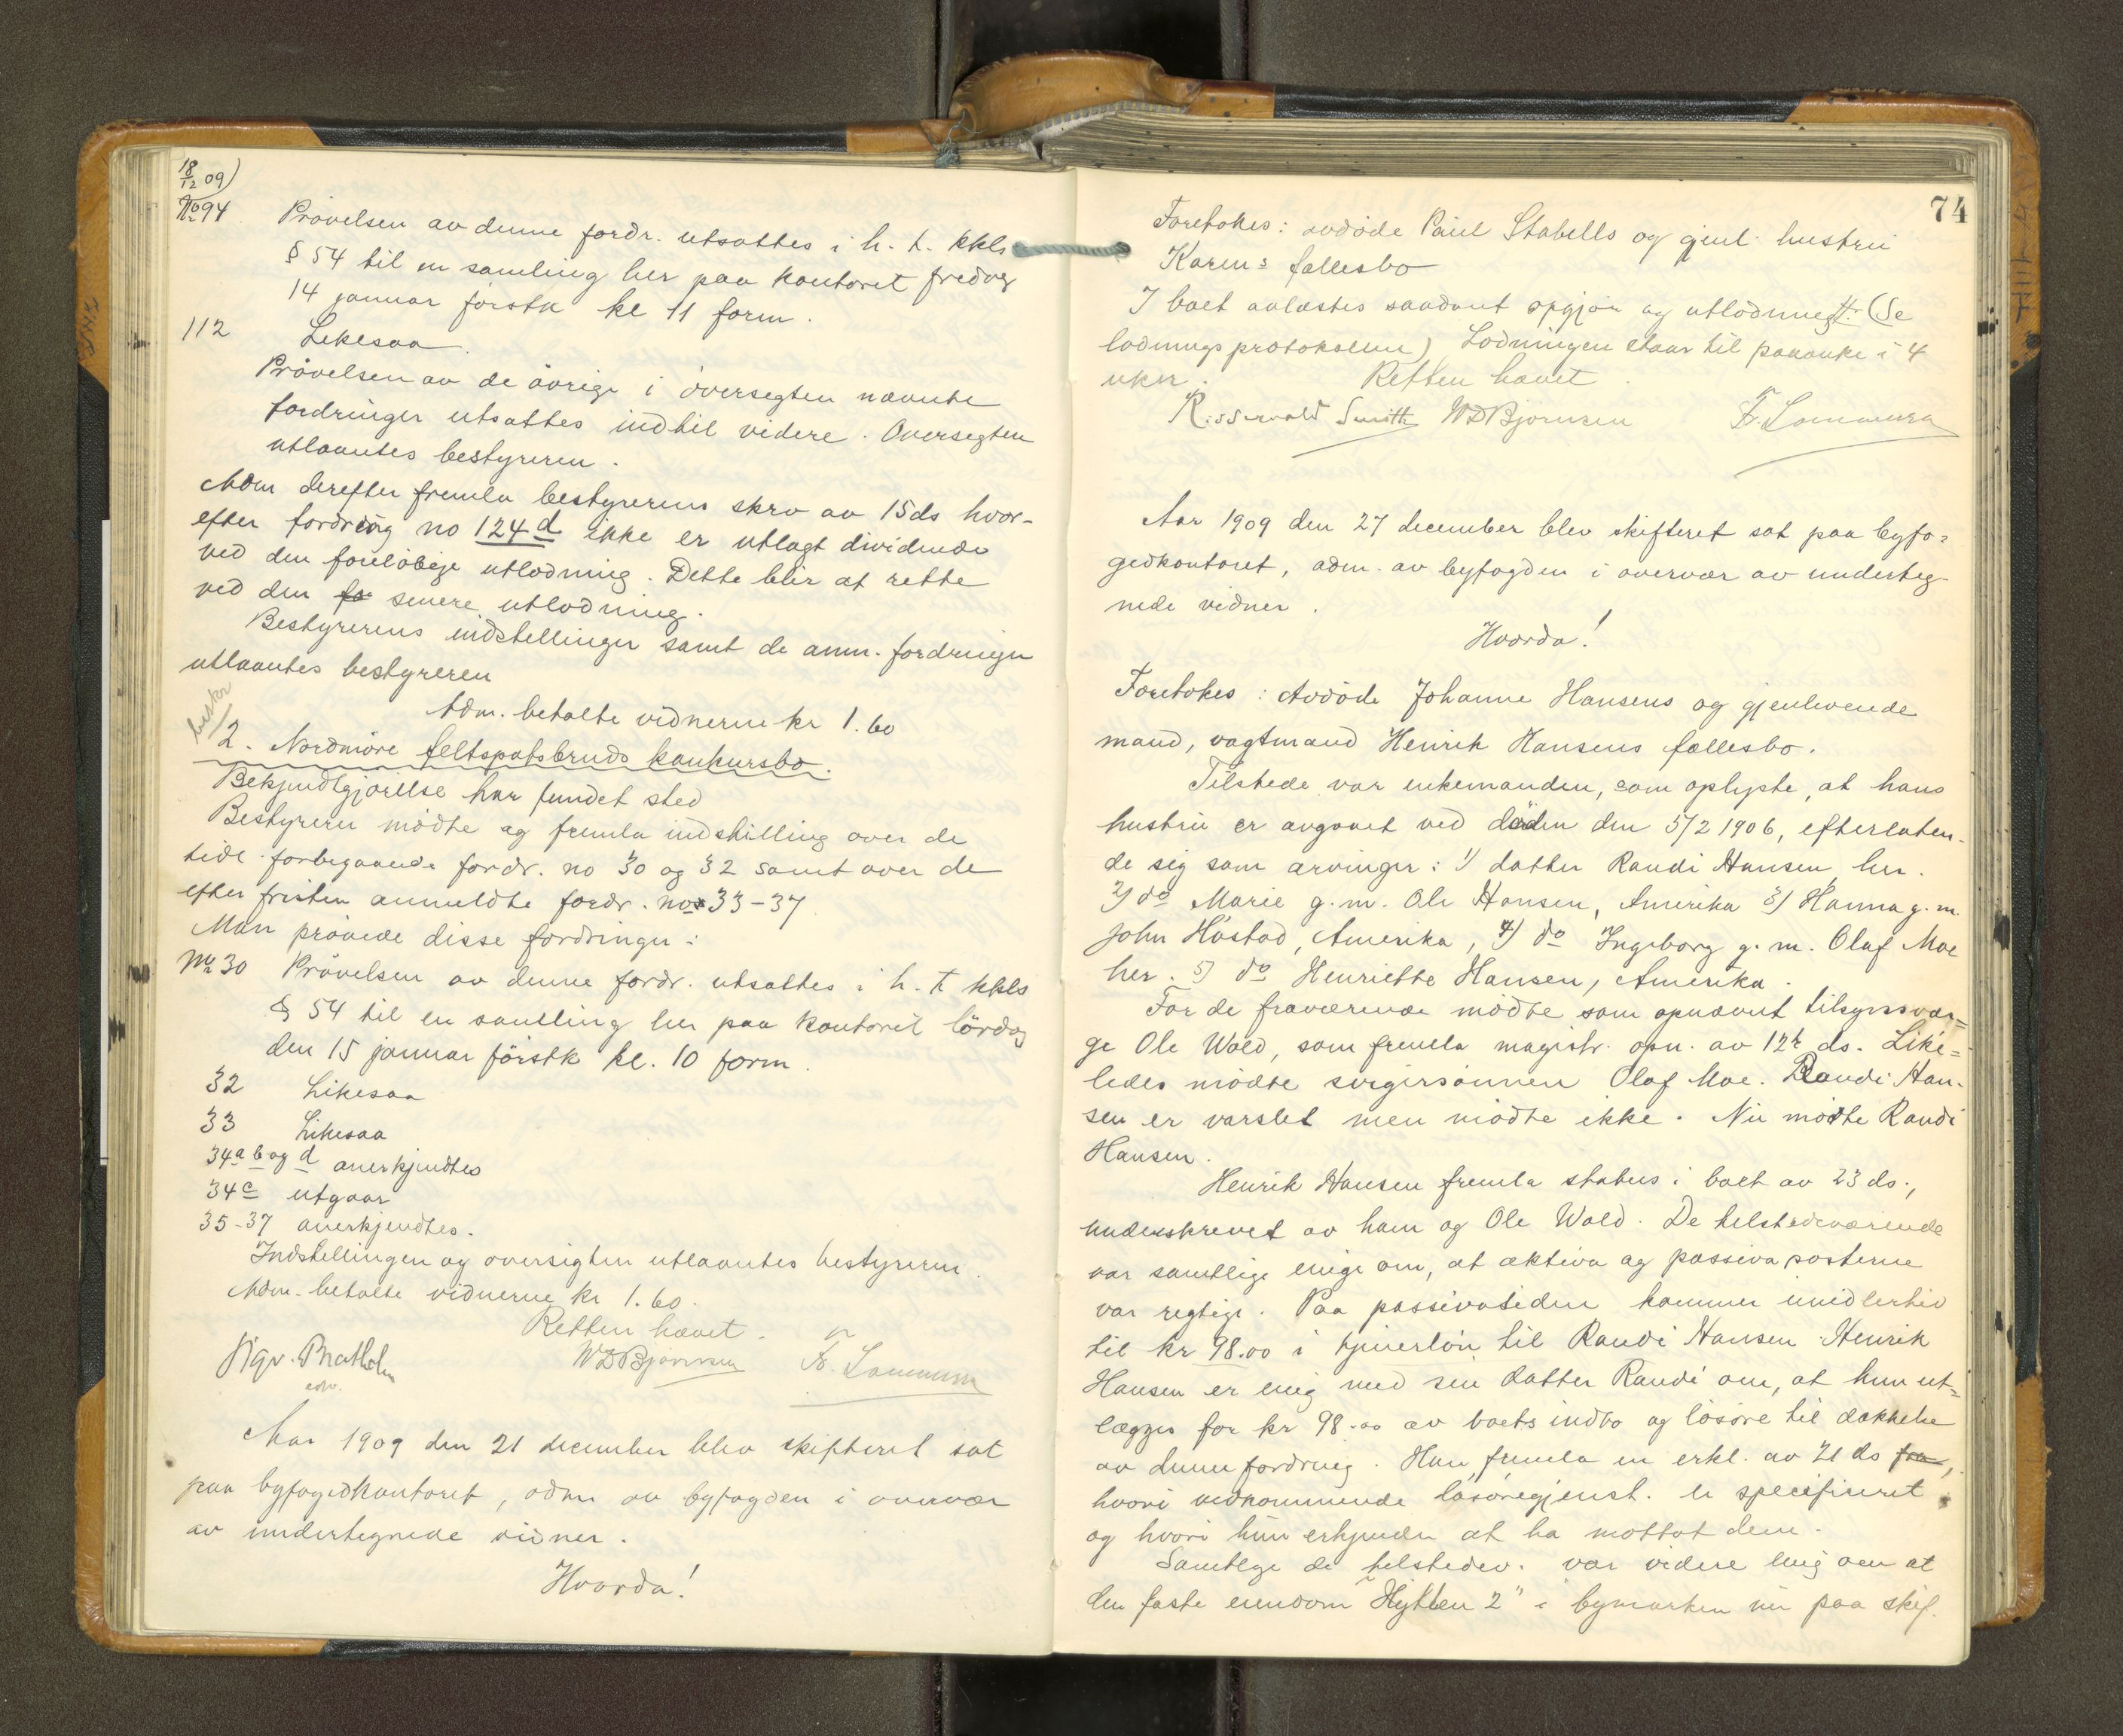 18/12 09)
No 94 Prövelsen av denne fordr. utsattes i h. t. kkls
§ 54 til en samling her paa kontoret fredag
14 januar förstk kl 11 form.
112 Likesaa.
Prövelsen av de övrige i oversegten nævnte
fordringer utsattes indtil videre. Oversegten
utlaantes bestyreren.
Adm derefter fremla bestyrerens skrv av 15 ds hvor-
efter fordring no 124 d ikke er utlagt dividende
ved den foreløbige utlodning. Dette blir at rette
ved den fo senere utlodning.
Bestyrerens indstellinger samt de anm. fordringer
utlaantes bestyreren
Adm. betalte vidnerne kr 1.60
beskr
2. Nordmöre feltspatsbruds konkursbo.
Bekjendtgjörelse har fundet sted
Bestyreren mödte og fremla indstilling over de
tidl. forbigaaende fordr. no 30 og 32 samt over de
efter fristen anmeldte fordr. nos 33-37
Man prövede disse fordringer:
No 30 Prövelsen av denne fordr. utsattes i h. t. kkls
§ 54 til en samling her paa kontoret lördag
den 15 januar förstk kl. 10 form.
32 Likesaa
33 Likesaa
34 a b og d anerkjendtes
34 c utgaar
35-37 anerkjendtes.
Indstellingen og oversigten utlaantes bestyreren.
Adm. betalte vidnerne kr 1.60.
Retten hævet.
WDBjørnsen Fr. Sommersen
Aar 1909 den 21 december blev skifteret sat
paa byfogedkontoret, adm av byfogden i overvær
av undertegnede vidner.
Hvorda!
74
Foretokes: avdøde Paul Stabells og gjenl. hustru
Karens fællesbo
I boet avlæstes saadant opgjør og utlodning: (Se
lodningsprotokollen) Lodningen staar til paaanke i 4
uker. Retten hævet.
Risservold Smith WDBjørnsen Fr. Sommersen
Aar 1909 den 27 december blev skifteret sat paa byfo=
gedkontoret, adm. av byfogden i overvær av underteg-
nede vidner.
Hvorda!
Foretokes: Avdöde Johanne Hansens og gjenlevende
mand, vagtmand Henrik Hansens fællesbo.
Tilstede var enkemanden, som oplyste, at hans
hustru er avgaaet ved döden den 5/2 1906, efterlaten-
de sig som arvinger: 1/ datter Randi Hansen her.
2/ do Marie g. m. Ole Hansen, Amerika 3/ Hanna g. m.
John Håstad, Amerika, 4/ do Ingeborg g. m. Olaf Moe
her. 5/ do Henriette Hansen, Amerika.
For de fraværende mödte som opnævnt tilsynsvær=
ge Ole Wold, som fremla magistr. opn. av 12t ds. Like=
ledes mödte svigersönnen Olaf Moe. Randi Han-
sen er varslet men mödte ikke. Nu mödte Randi
Hansen.
Henrik Hansen fremla status i boet av 23 ds.,
underskrevet av ham og Ole Wold. De tilstedeværende
var samtlige enige om, at aktiva og passiva posterne
var regtige. Paa passivasiden kommer imidlertid
til kr 98.00 i tjenerløn til Randi Hansen. Henrik
Hansen er enig med sin datter Randi om, at hun ut=
lægges for kr 98.00 av boets indbo og lösöre til dækkelse
av denne fordring. Hun fremla en erkl. av 21 ds fra,
hvori vedkommende lösöregjenst. er specifiseret
og hvori hun erkjender at ha mottat dem.
Samtlige de tilstedev. var videre enig om at
den faste eiendom "Hytten 2" i bymarken nu paa skif.